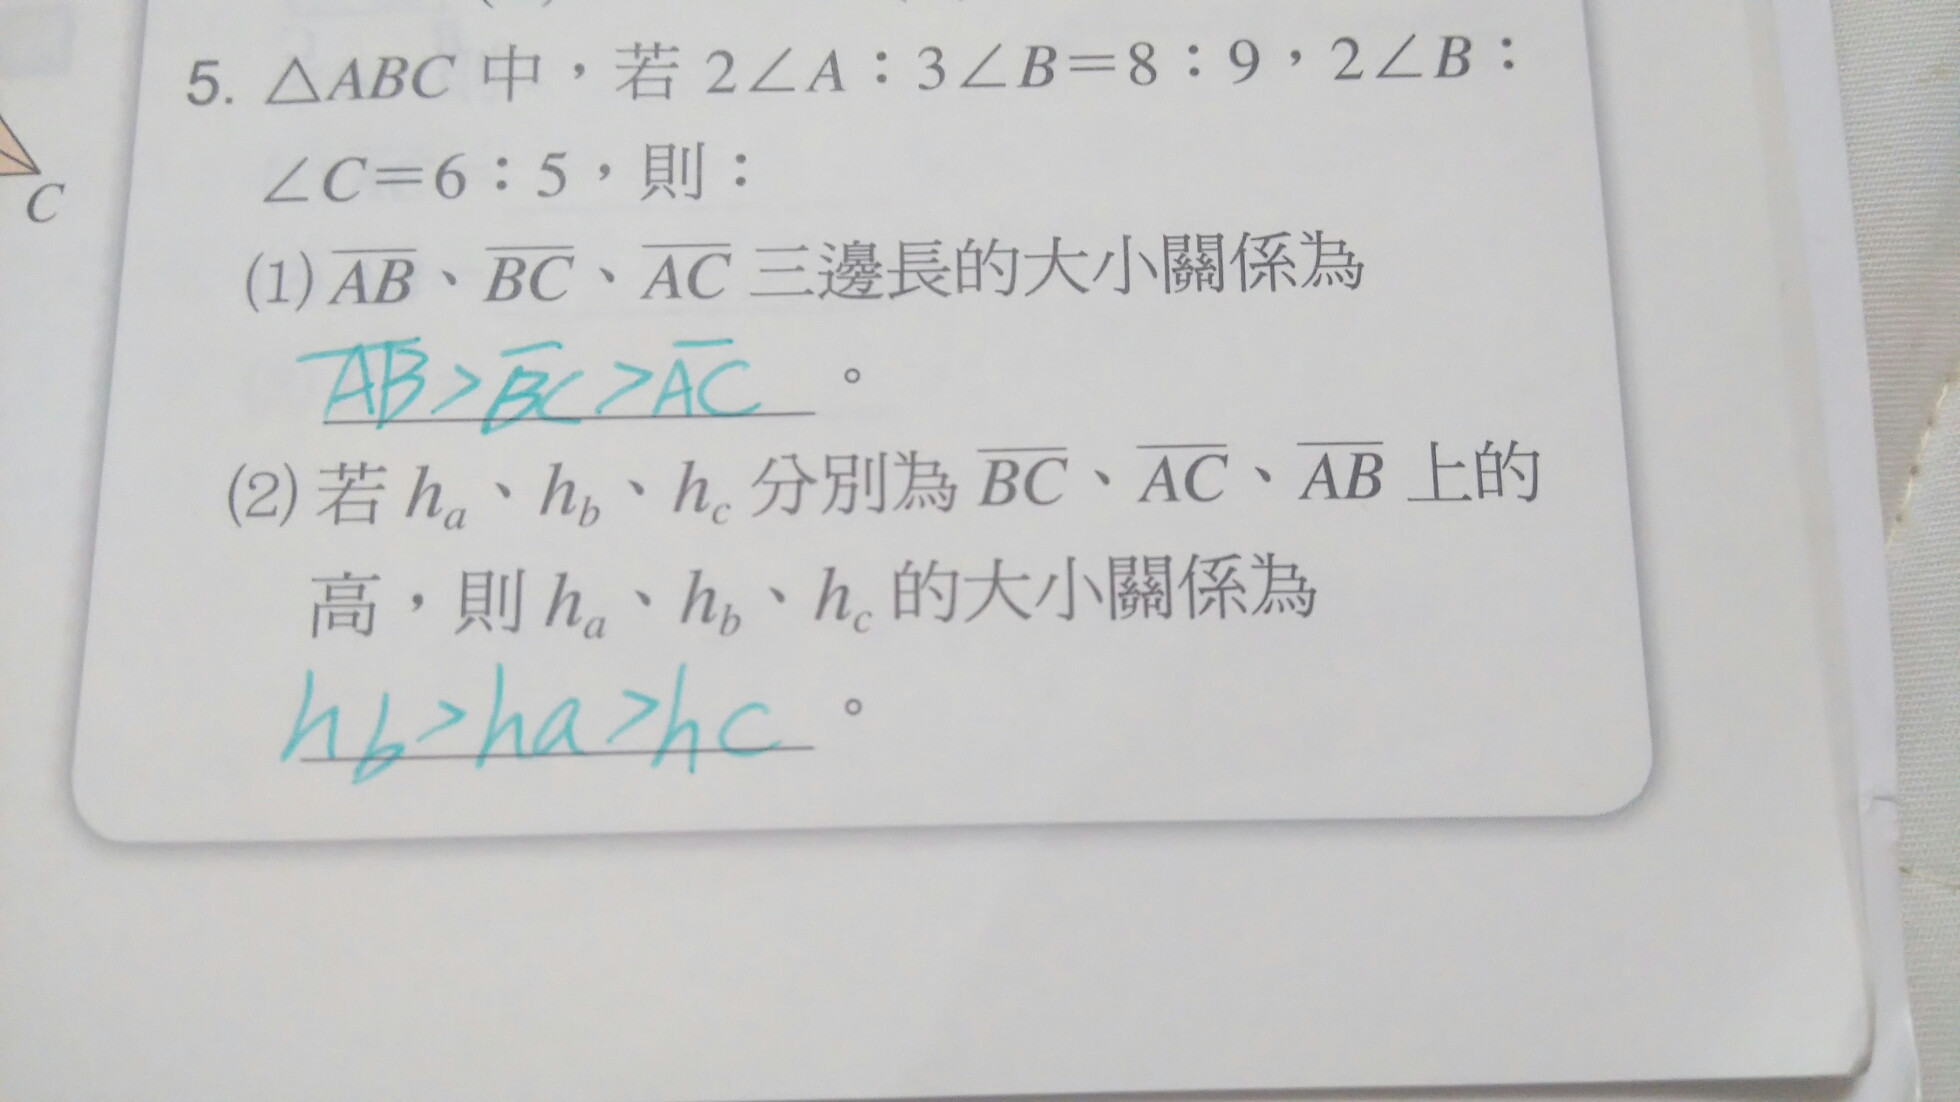 5. △ABC 中，若 2∠A：3∠B=8：9，2∠B：
∠C=6：5，則：
C
(1) AB、BC、AC 三邊長的大小關係為
AB>BC>AC。
(2) 若 hₐ、h_b、h_c 分別為 BC、AC、AB 上的
高，則 hₐ、h_b、h_c 的大小關係為
hb>ha>hc。